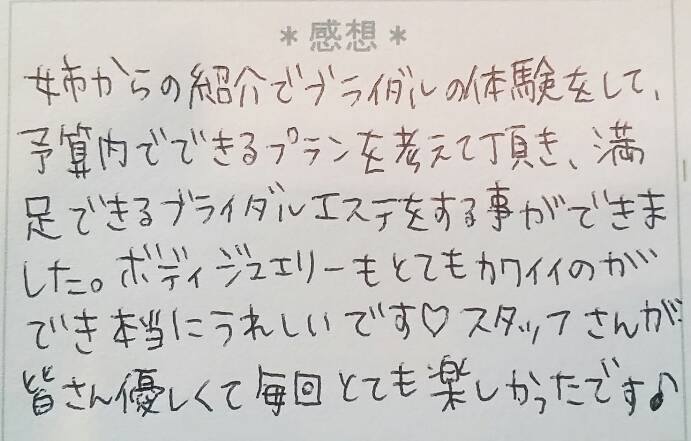 ＊感想＊
姉からの紹介でブライダルの体験をして、
予算内でできるプランを考えて頂き、満
足できるブライダルエステをする事ができま
した。ボディジュエリーもとてもカワイイのが
でき本当にうれしいです♡スタッフさんが
皆さん優しくて毎回とても楽しかったです♪